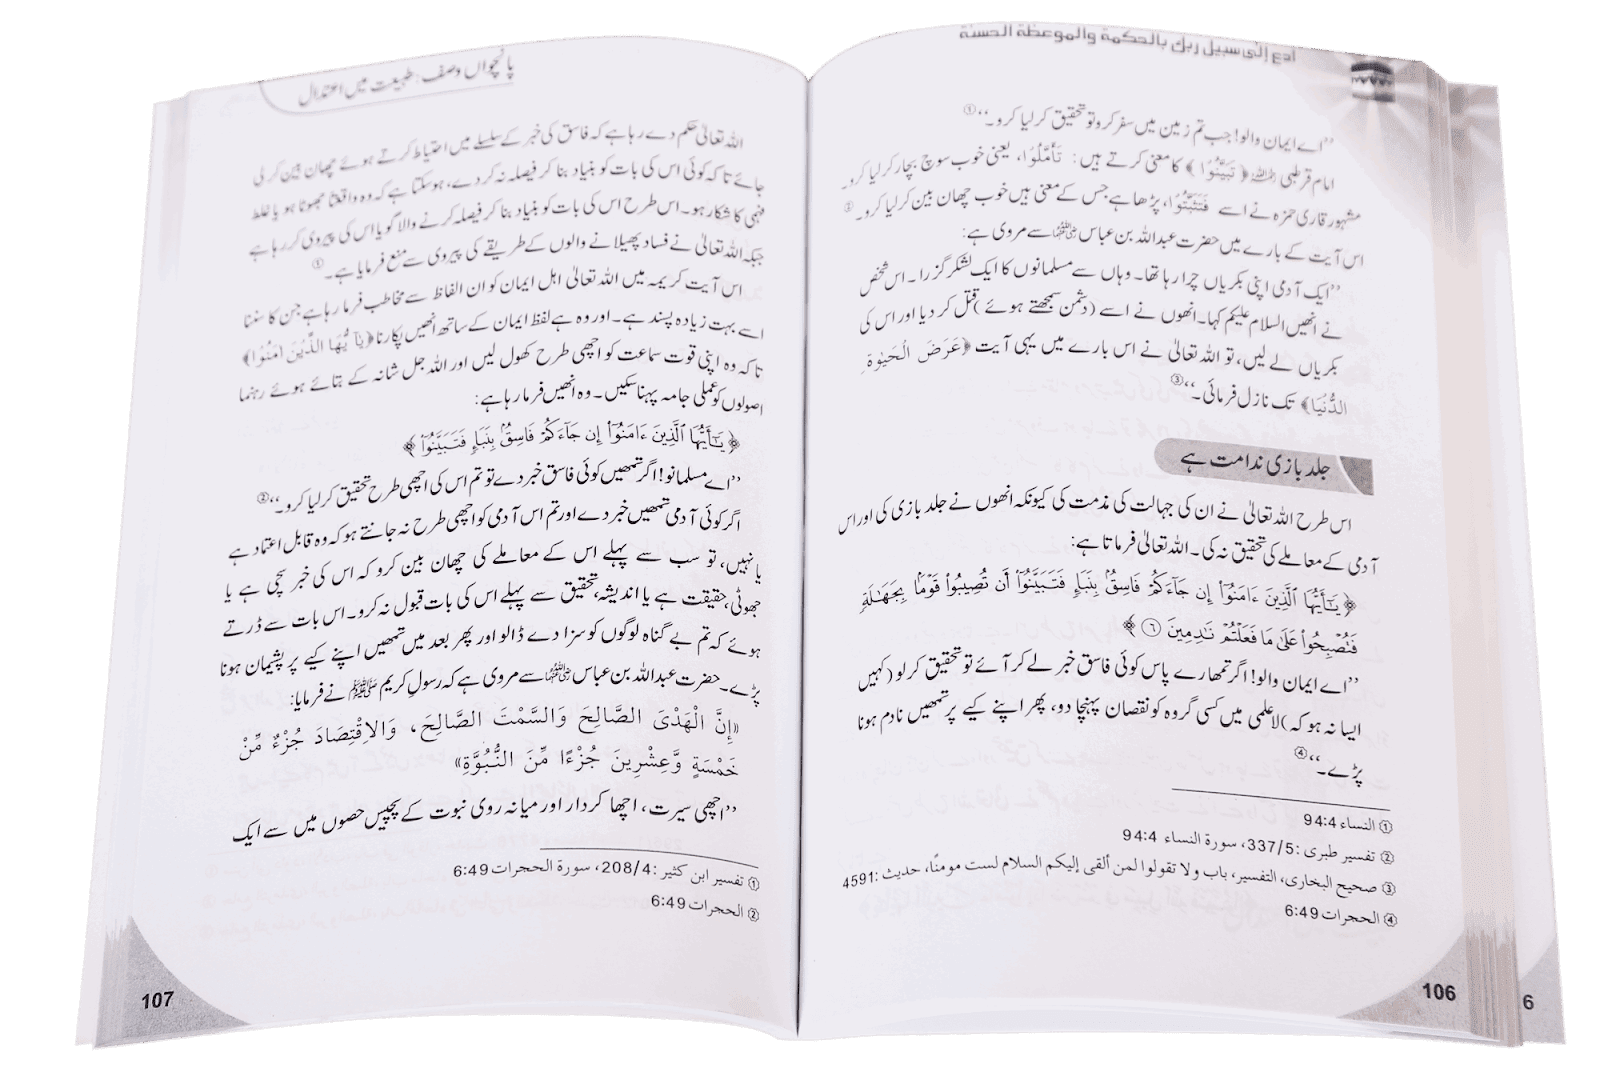 ادع إلى سبيل ربك بالحكمة والموعظة الحسنة
’’اے ایمان والو! جب تم زمین میں سفر کرو تو تحقیق کر لیا کرو۔‘‘①
امام قرطبی رحمہ اللہ ﴿تَبَيَّنُوْا﴾ کا معنی کرتے ہیں: تَأَمَّلُوْا، یعنی خوب سوچ بچار کر لیا کرو۔
مشہور قاری حمزہ نے اسے فَتَثَبَّتُوْا، پڑھا ہے جس کے معنی ہیں خوب چھان بین کر لیا کرو۔②
اس آیت کے بارے میں حضرت عبداللہ بن عباس رضی اللہ عنہما سے مروی ہے:
’’ایک آدمی اپنی بکریاں چرا رہا تھا۔ وہاں سے مسلمانوں کا ایک لشکر گزرا۔ اس شخص
نے انھیں السلام علیکم کہا۔ انھوں نے اسے (دشمن سمجھتے ہوئے) قتل کر دیا اور اس کی
بکریاں لے لیں، تو اللہ تعالیٰ نے اس بارے میں یہی آیت ﴿عَرَضَ الْحَيٰوةِ
الدُّنْيَا﴾ تک نازل فرمائی۔‘‘③
جلد بازی ندامت ہے
اس طرح اللہ تعالیٰ نے ان کی جہالت کی مذمت کی کیونکہ انھوں نے جلد بازی کی اور اس
آدمی کے معاملے کی تحقیق نہ کی۔ اللہ تعالیٰ فرماتا ہے:
﴿يَـٰٓأَيُّهَا ٱلَّذِينَ ءَامَنُوٓا۟ إِن جَآءَكُمْ فَاسِقٌۢ بِنَبَإٍ فَتَبَيَّنُوٓا۟ أَن تُصِيبُوا۟ قَوْمًۢا بِجَهَـٰلَةٍ
فَتُصْبِحُوا۟ عَلَىٰ مَا فَعَلْتُمْ نَـٰدِمِينَ ٦﴾
’’اے ایمان والو! اگر تمھارے پاس کوئی فاسق خبر لے کر آئے تو تحقیق کر لو (کہیں
ایسا نہ ہو کہ) لاعلمی میں کسی گروہ کو نقصان پہنچا دو، پھر اپنے کیے پر تمھیں نادم ہونا
پڑے۔‘‘④
① النساء 94:4
② تفسير طبری: 337/5، سورة النساء 94:4
③ صحيح البخاری، التفسير، باب ولا تقولوا لمن ألقى إليكم السلام لست مومنًا، حديث: 4591
④ الحجرات 6:49
106
6
پانچواں وصف: طبیعت میں اعتدال
اللہ تعالیٰ حکم دے رہا ہے کہ فاسق کی خبر کے سلسلے میں احتیاط کرتے ہوئے چھان بین کر لی
جائے تاکہ کوئی اس کی بات کو بنیاد بنا کر فیصلہ نہ کر دے، ہو سکتا ہے کہ وہ واقعتًا جھوٹا ہو یا غلط
فہمی کا شکار ہو۔ اس طرح اس کی بات کو بنیاد بنا کر فیصلہ کرنے والا گویا اس کی پیروی کر رہا ہے
جبکہ اللہ تعالیٰ نے فساد پھیلانے والوں کے طریقے کی پیروی سے منع فرمایا ہے۔①
اس آیت کریمہ میں اللہ تعالیٰ اہل ایمان کو ان الفاظ سے مخاطب فرما رہا ہے جن کا سننا
اسے بہت زیادہ پسند ہے۔ اور وہ ہے لفظ ایمان کے ساتھ انھیں پکارنا ﴿يٰۤاَ يُّهَا الَّذِيْنَ اٰمَنُوْا﴾
تاکہ وہ اپنی قوت سماعت کو اچھی طرح کھول لیں اور اللہ جل شانہ کے بتائے ہوئے رہنما
اصولوں کو عملی جامہ پہنا سکیں۔ وہ انھیں فرما رہا ہے:
﴿يَـٰٓأَيُّهَا ٱلَّذِينَ ءَامَنُوٓا۟ إِن جَآءَكُمْ فَاسِقٌۢ بِنَبَإٍ فَتَبَيَّنُوٓا۟﴾
’’اے مسلمانو! اگر تمھیں کوئی فاسق خبر دے تو تم اس کی اچھی طرح تحقیق کر لیا کرو۔‘‘②
اگر کوئی آدمی تمھیں خبر دے اور تم اس آدمی کو اچھی طرح نہ جانتے ہو کہ وہ قابل اعتماد ہے
یا نہیں، تو سب سے پہلے اس کے معاملے کی چھان بین کرو کہ اس کی خبر سچی ہے یا
جھوٹی، حقیقت ہے یا اندیشہ، تحقیق سے پہلے اس کی بات قبول نہ کرو۔ اس بات سے ڈرتے
ہوئے کہ تم بے گناہ لوگوں کو سزا دے ڈالو اور پھر بعد میں تمھیں اپنے کیے پر پشیمان ہونا
پڑے۔ حضرت عبداللہ بن عباس رضی اللہ عنہما سے مروی ہے کہ رسول کریم ﷺ نے فرمایا:
«إِنَّ الْهَدْىَ الصَّالِحَ وَالسَّمْتَ الصَّالِحَ، وَالاِقْتِصَادَ جُزْءٌ مِّنْ
خَمْسَةٍ وَّعِشْرِينَ جُزْءًا مِّنَ النُّبُوَّةِ»
’’اچھی سیرت، اچھا کردار اور میانہ روی نبوت کے پچیس حصوں میں سے ایک
① تفسير ابن كثير: 208/4، سورة الحجرات 6:49
② الحجرات 6:49
107